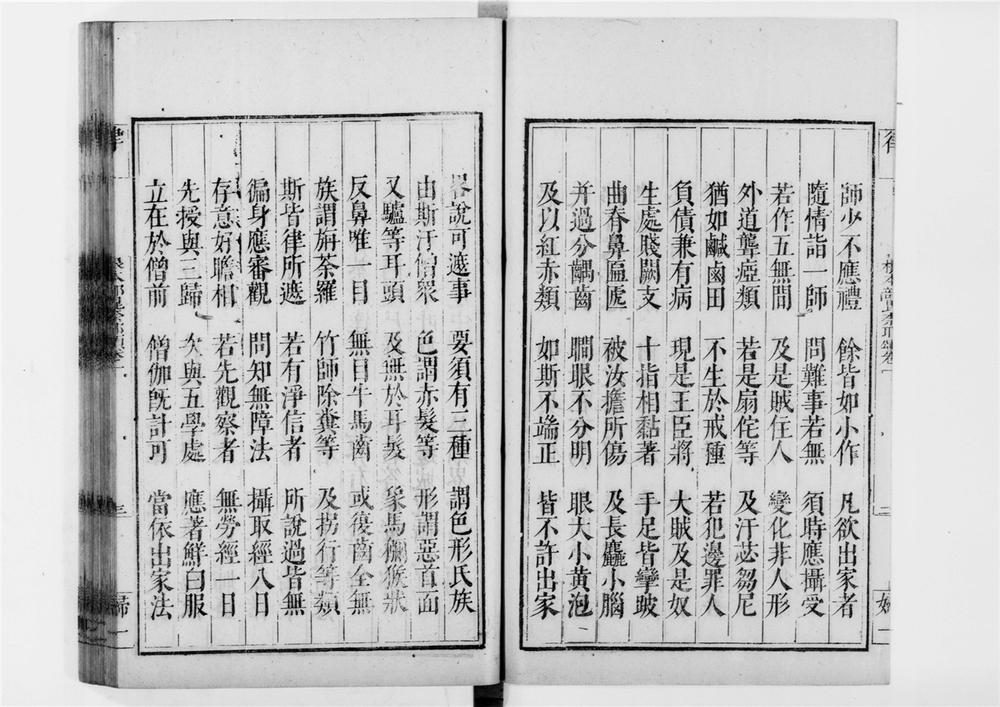 師少不應禮　餘皆如小作　凡欲出家者
隨情詣一師　問難事若無　須時應攝受
若作五無間　及是賊住人　變化非人形
外道聾瘂類　若是扇侘等　及汙苾芻尼
猶如鹹鹵田　不生於戒種　若犯邊罪人
負債兼有病　現是王臣將　大賊及是奴
生處賤闕支　十指相黏著　手足皆攣跛
曲脊鼻匾㔸　被汝擔所傷　及長麤小腦
并過分齲齒　瞷眼不分明　眼大小黄泡
及以紅赤類　如斯不端正　皆不許出家
畧說可遮事　要須有三種　謂色形氏族
由斯汙僧衆　色謂赤髮等　形謂惡首面
又驢等耳頭　及無於耳髮　象馬獼猴狀
反鼻唯一目　無目牛馬齒　或復齒全無
族謂旃荼羅　竹師除糞等　及拐行等類
斯皆律所遮　若有淨信者　所說過皆無
徧身應審觀　問知無障法　攝取經八日
存意好瞻相　若先觀察者　無勞經一日
先授與三歸　次與五學處　應著鮮白服
立在於僧前　僧伽旣許可　當依出家法
律
二
三
歸一